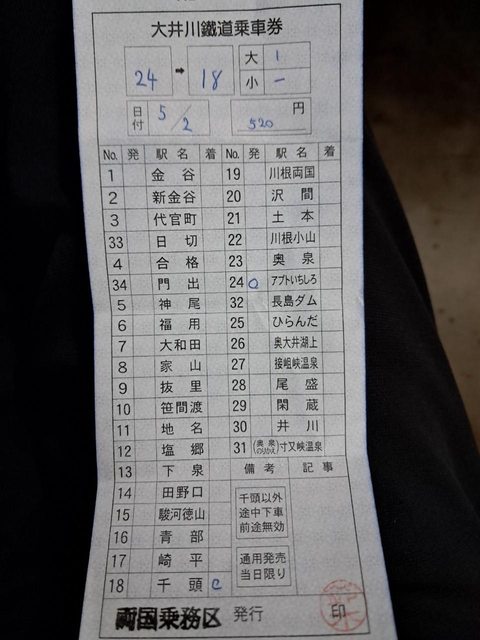 大井川鐵道乗車券
24 ➡ 18 大 1
小 一
日付 5/2 520 円
No. 発 駅名 着 No. 発 駅名 着
1 金谷 19 川根両国
2 新金谷 20 沢間
3 代官町 21 土本
33 日切 22 川根小山
4 合格 23 奥泉
34 門出 24 ○ アプトいちしろ
5 神尾 32 長島ダム
6 福用 25 ひらんだ
7 大和田 26 奥大井湖上
8 家山 27 接岨峡温泉
9 抜里 28 尾盛
10 笹間渡 29 閑蔵
11 地名 30 井川
12 塩郷 31 (奥泉のりかえ)寸又峡温泉
13 下泉 備考 記事
14 田野口 千頭以外
15 駿河徳山 途中下車
16 青部 前途無効
17 崎平 通用発売
18 千頭 ○ 当日限り
両国乗務区 発行 印